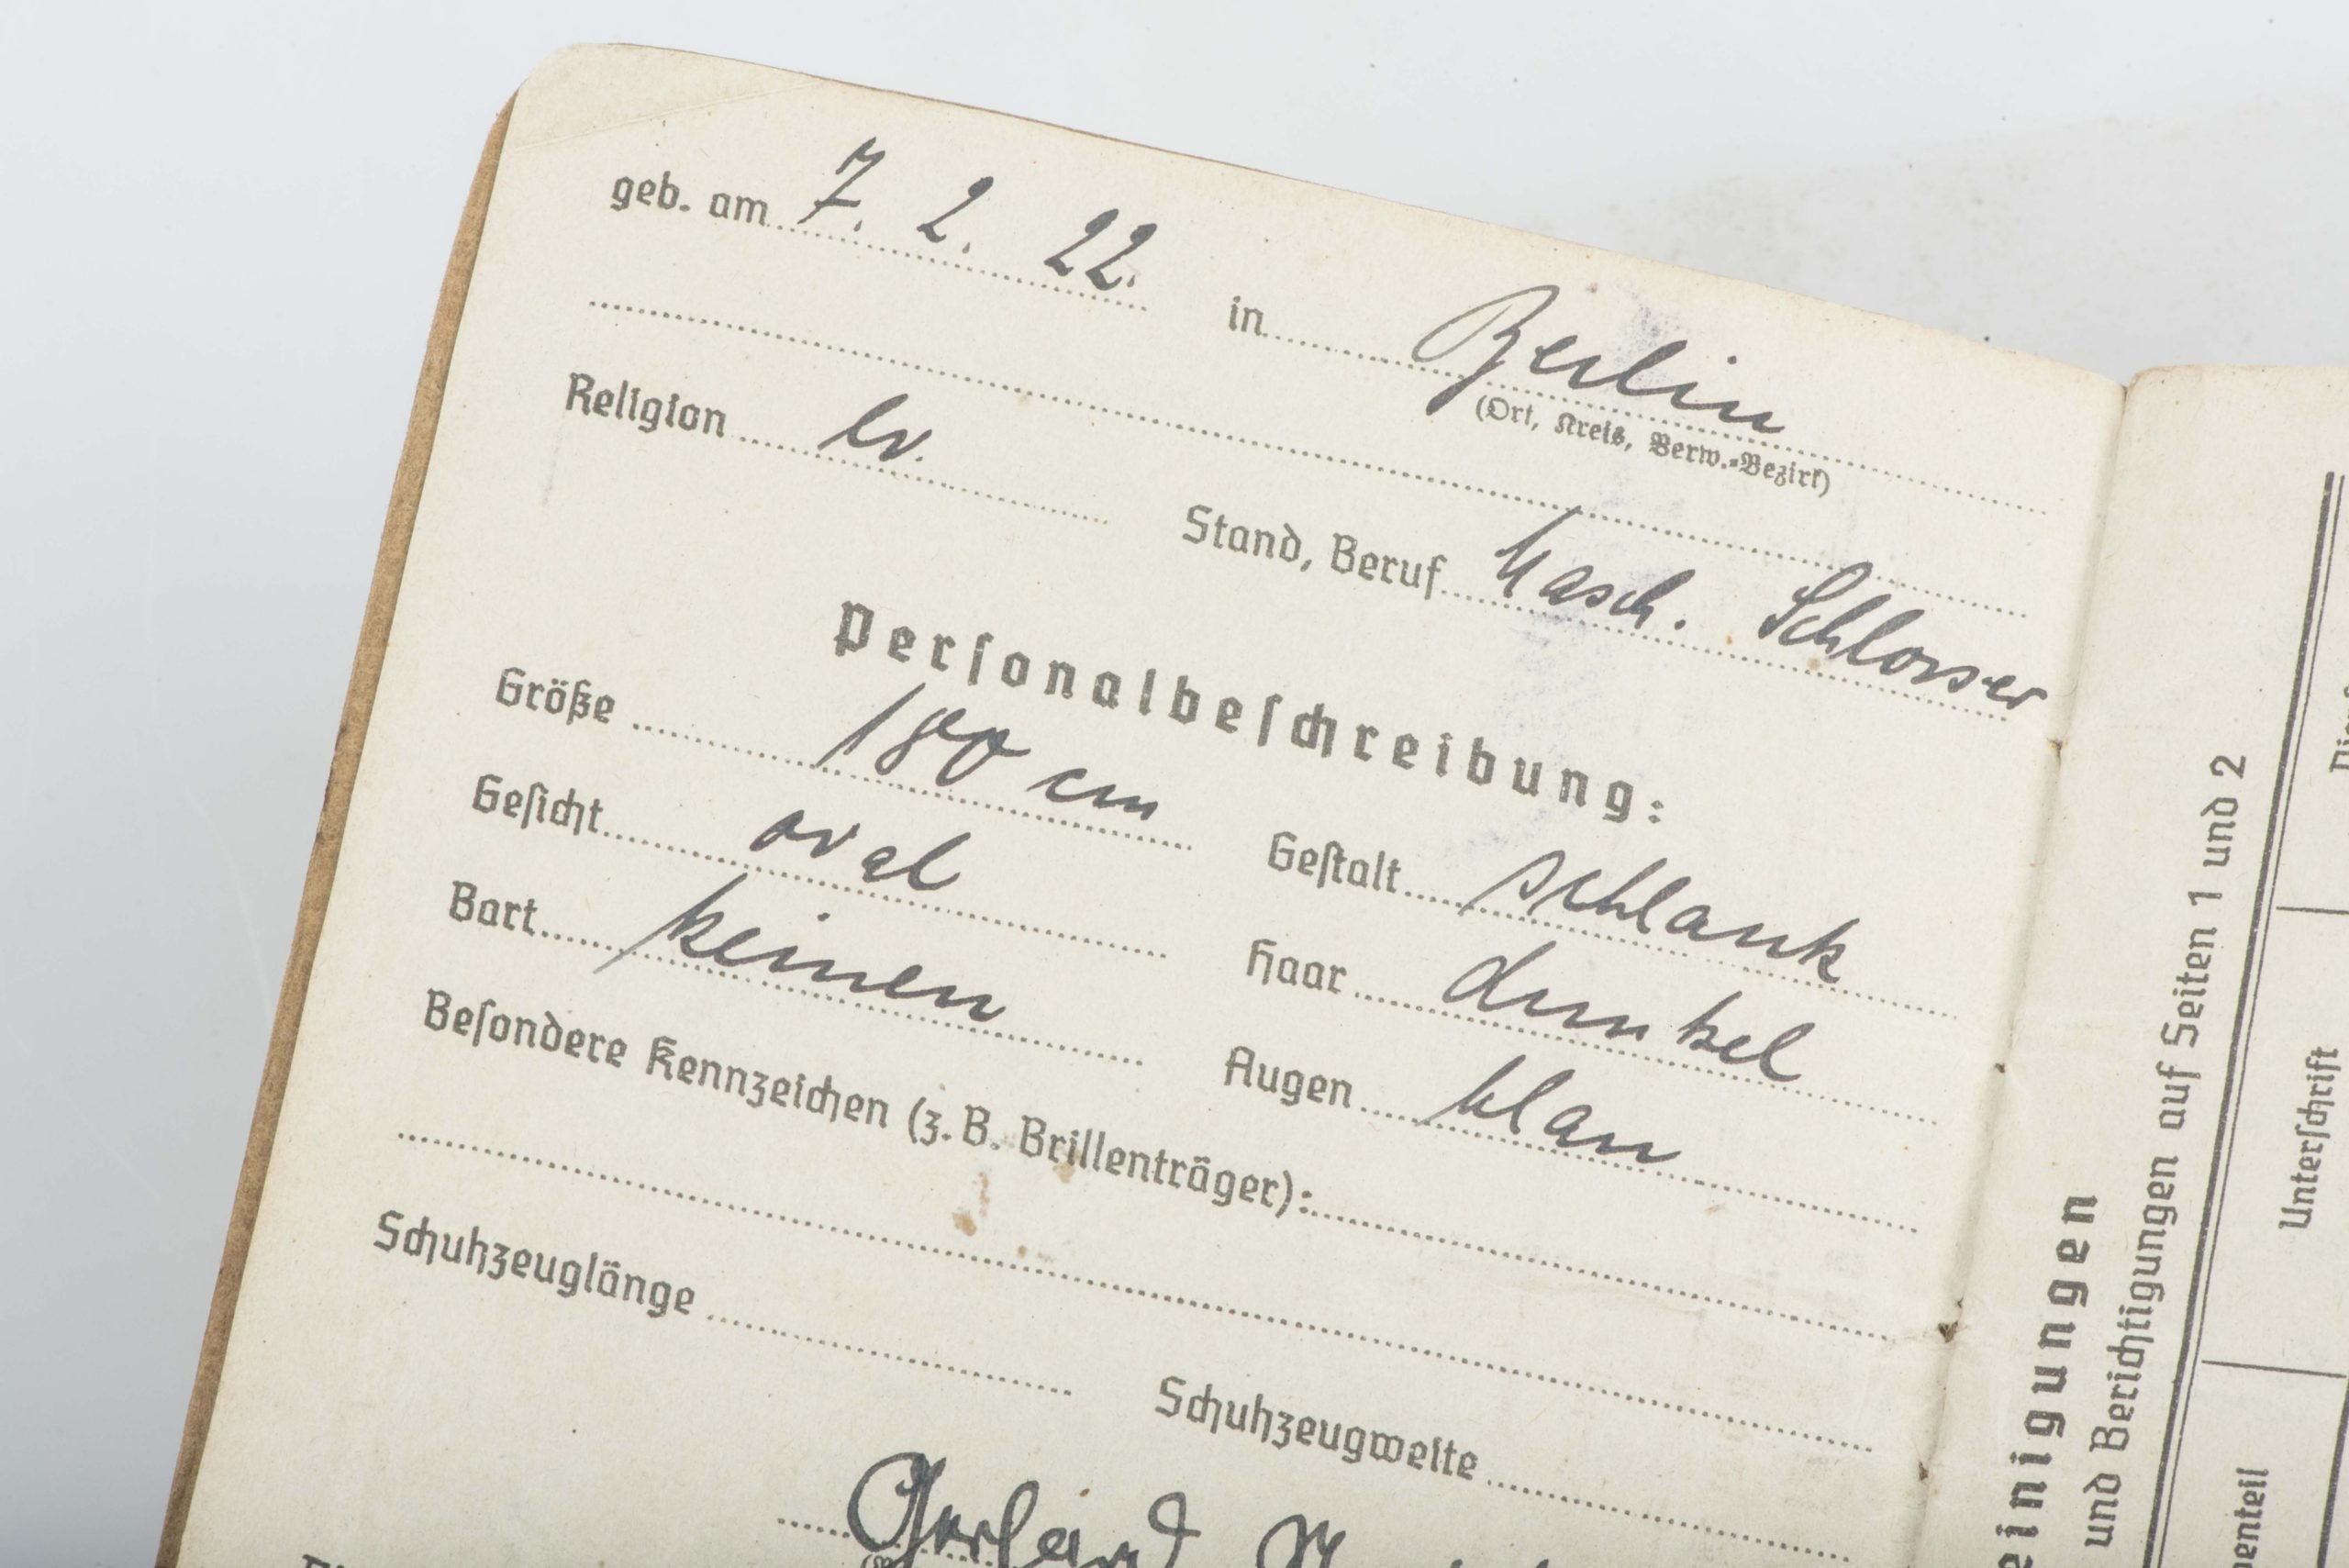 geb. am 7. 2. 22. in Berlin
(Ort, Kreis, Verw.-Bezirk)
Religion ev. Stand, Beruf Masch. Schlosser
Personalbeschreibung:
Größe 180 cm Gestalt schlank
Gesicht oval Haar dunkel
Bart keinen Augen blau
Besondere Kennzeichen (z. B. Brillenträger):
Schuhzeuglänge Schuhzeugweite
Gerhard
einigungen
und Berichtigungen auf Seiten 1 und 2
Unterschrift
penteil